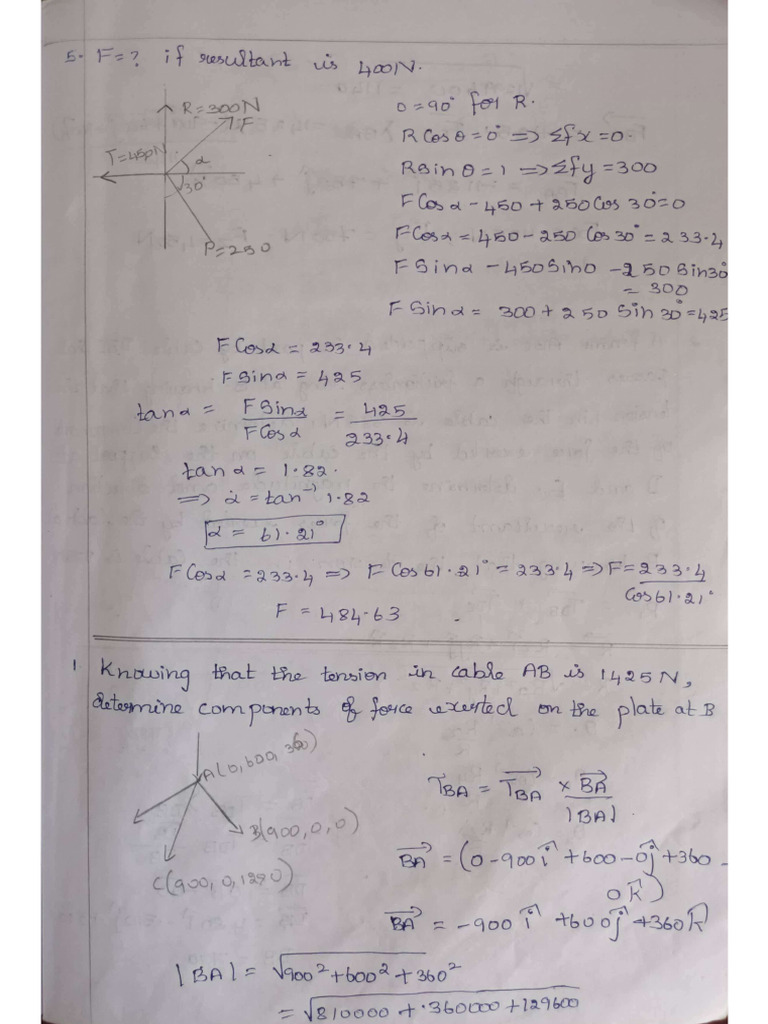 5. F=? if resultant is 400N.
R=300N
F
T=450N
α
30°
P=250
θ=90° for R.
R Cos θ = 0° => Σfx=0
R sin θ = 1 => Σfy = 300
F Cos α - 450 + 250 Cos 30° = 0
F Cos α = 450 - 250 Cos 30° = 233.4
F Sin α - 450 Sin 0 - 250 Sin 30°
= 300
F Sin α = 300 + 250 Sin 30° = 425
F Cos α = 233.4
F Sin α = 425
tan α = F Sin α / F Cos α = 425 / 233.4
tan α = 1.82.
=> α = tan⁻¹ 1.82
α = 61.21°
F Cos α = 233.4 => F Cos 61.21° = 233.4 => F = 233.4 / Cos 61.21°
F = 484.63
1. Knowing that the tension in cable AB is 1425N,
determine components of force exerted on the plate at B
A(0,600,360)
B(900,0,0)
C(900,0,1290)
T⃗BA = T⃗BA × B⃗A / |BA|
B⃗A = (0-900 î + 600-0 ĵ + 360 -
0 k̂)
B⃗A = -900 î + 600 ĵ + 360 k̂
|BA| = √900² + 600² + 360²
= √810000 + 360000 + 129600